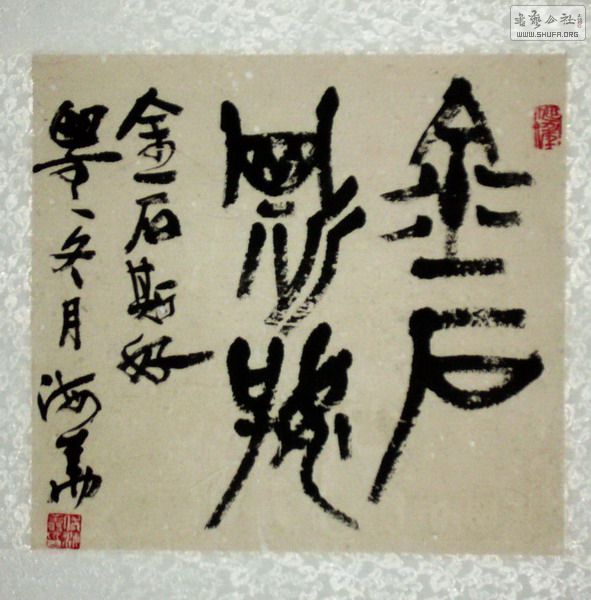 金石
斯好
金石斯好
冬月海
书艺公社
WWW.SHUFA.ORG